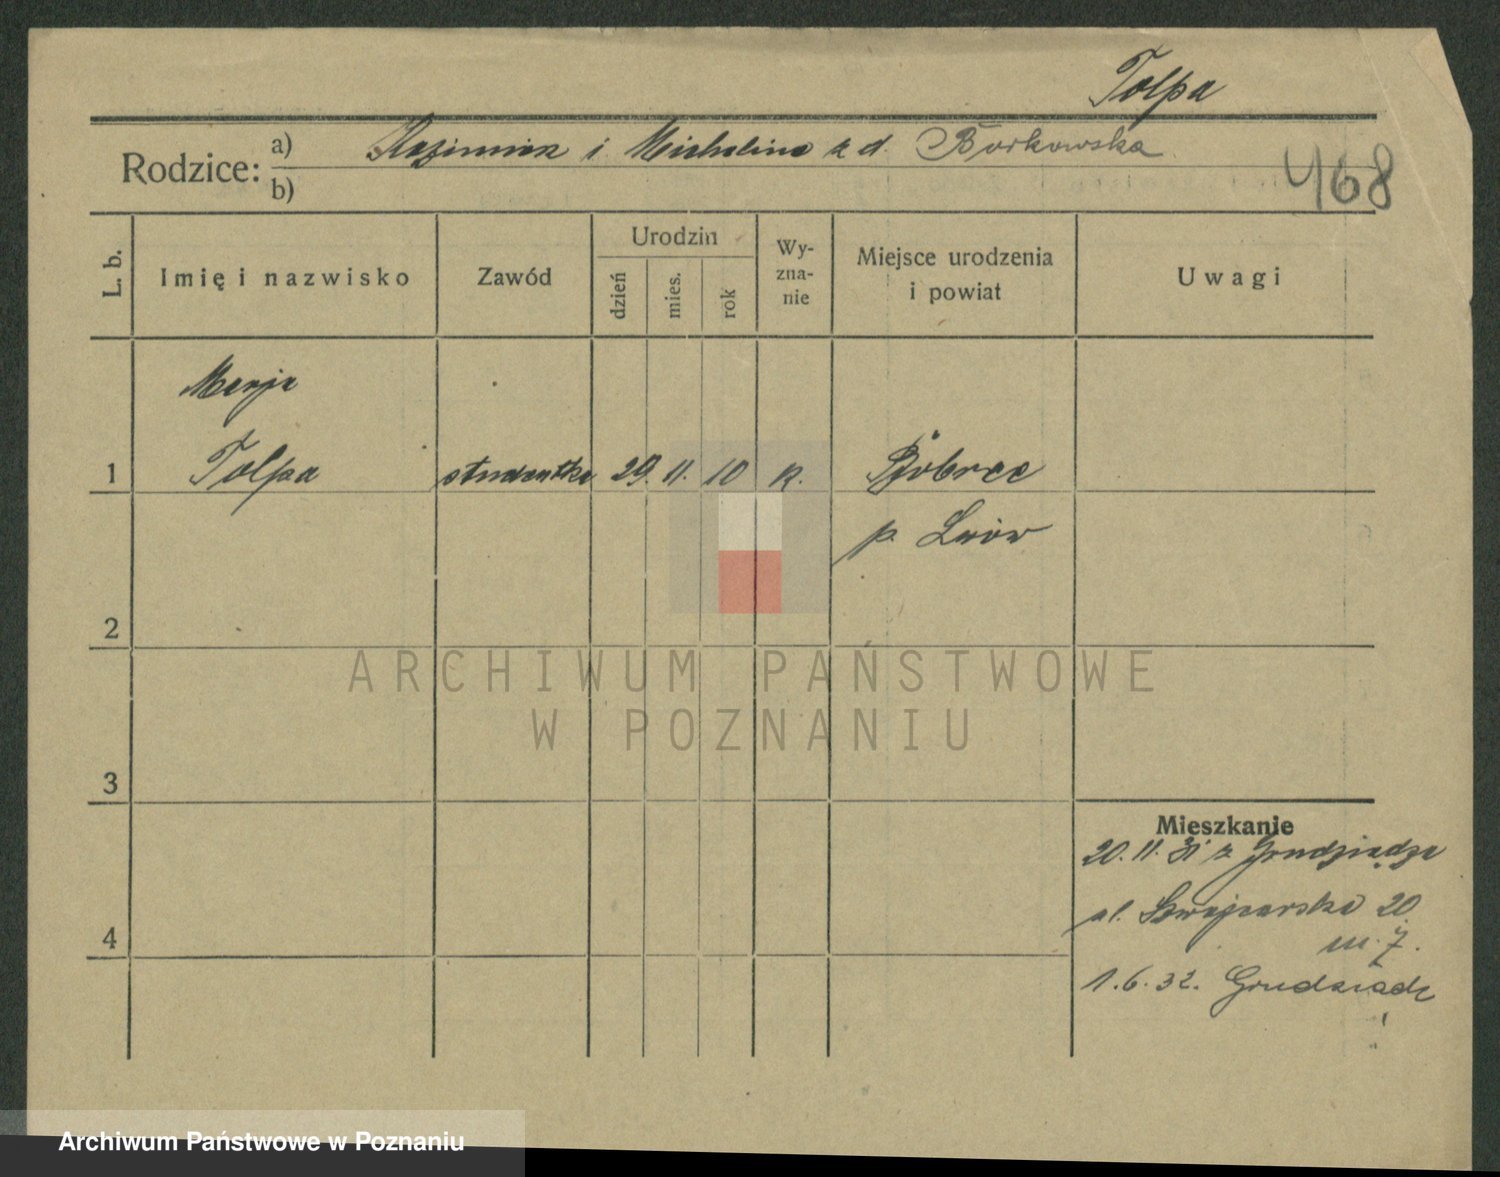 Tolpa
Rodzice: a) Kazimierz i Michalina z d. Borkowska
b)
468
L. b.
Imię i nazwisko
Zawód
Urodzin
dzień
mies.
rok
Wy-
zna-
nie
Miejsce urodzenia
i powiat
Uwagi
Marja
1 Tolpa studentka 29. 11. 10 k. Bóbrce
p. Lwów
2
3
4
Mieszkanie
20. 11. 31 z Grudziądza
ul. Szwajcarska 20
m. 7.
1. 6. 32. Grudziądz
ARCHIWUM PAŃSTWOWE
W POZNANIU
Archiwum Państwowe w Poznaniu